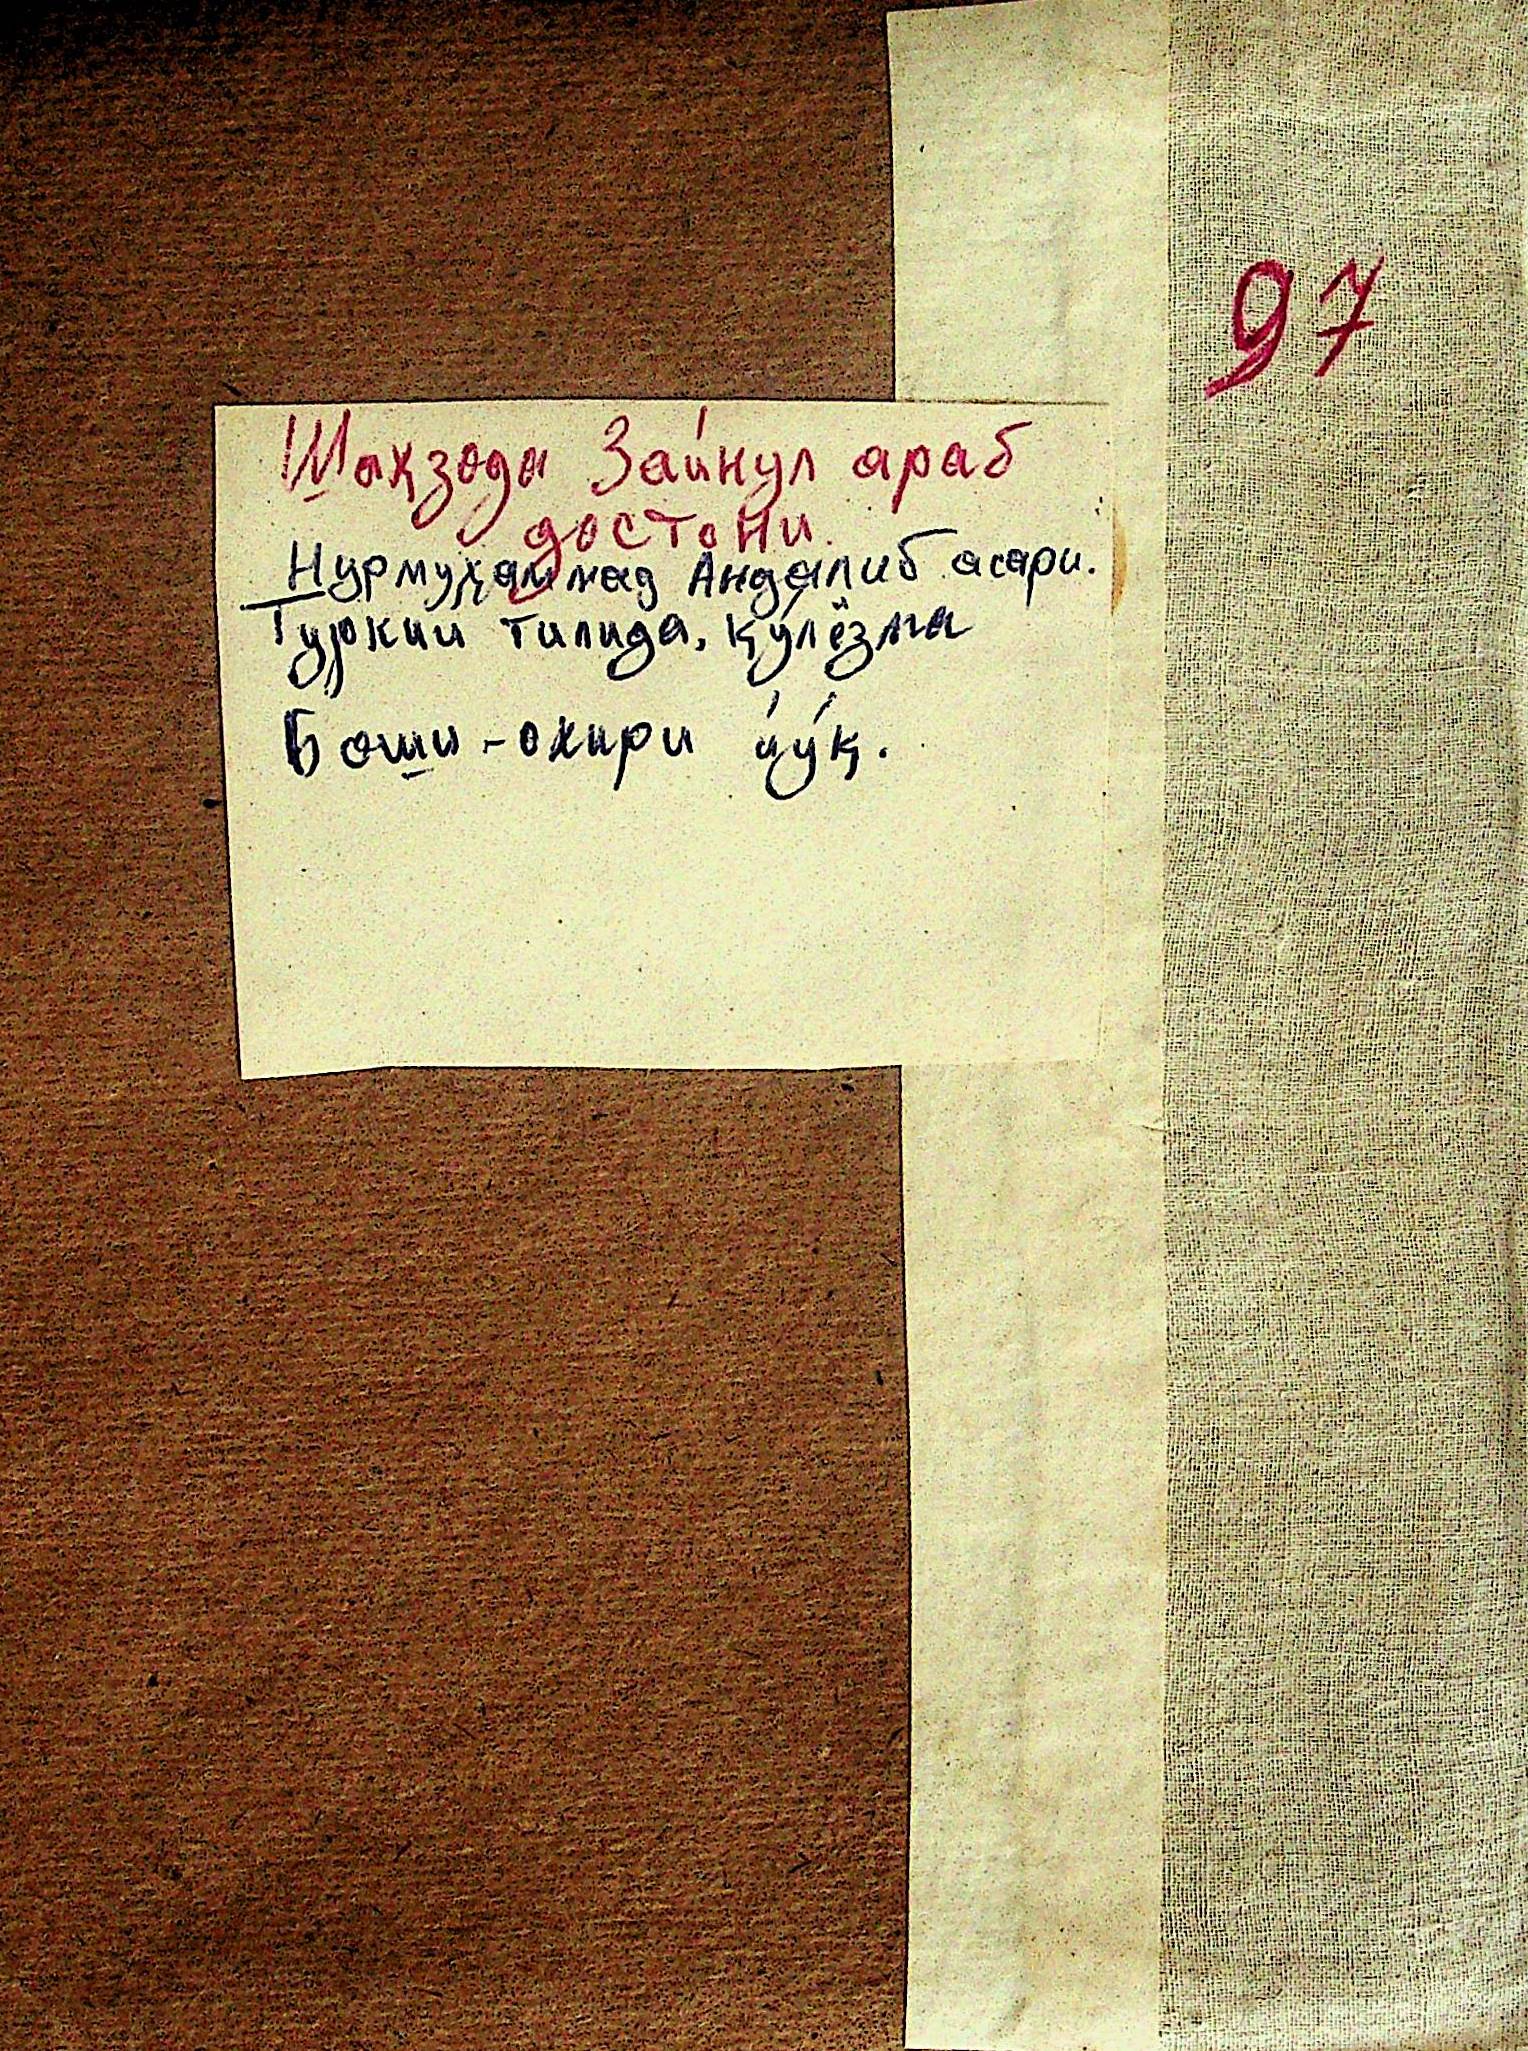 97
Шаҳзода Зайнул араб
достони.
Нурмуҳаммад Андалиб асари.
Туркий тилида, қўлёзма
Боши - охири йўқ.